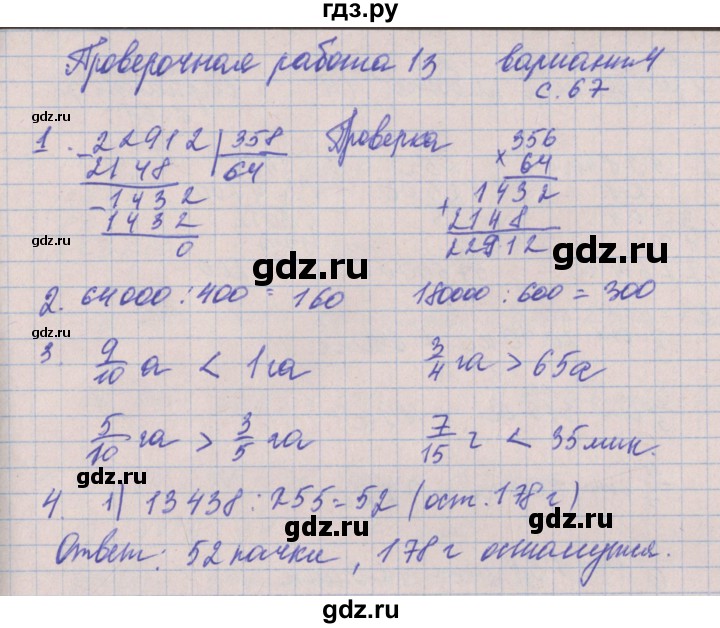 гдз.ру
Проверочная работа 13 вариант 4
с. 67
gdz.ru gdz.ru
1. 22912 | 358 Проверка 356
2148 64 × 64
- 1432 + 1432
1432 2148
0 22912
gdz.ru gdz.ru
gdz.ru
2. 64000 : 400 = 160 180000 : 600 = 300
gdz.ru gdz.ru
3. 9/10 а < 1 га 3/4 га > 65а
5/10 га > 3/5 га 7/15 г < 35 мин.
gdz.ru gdz.ru
4. 1) 13438 : 255 = 52 (ост. 178 г)
gdz.ru gdz.ru
Ответ: 52 пачки, 178 г останутся.
gdz.ru